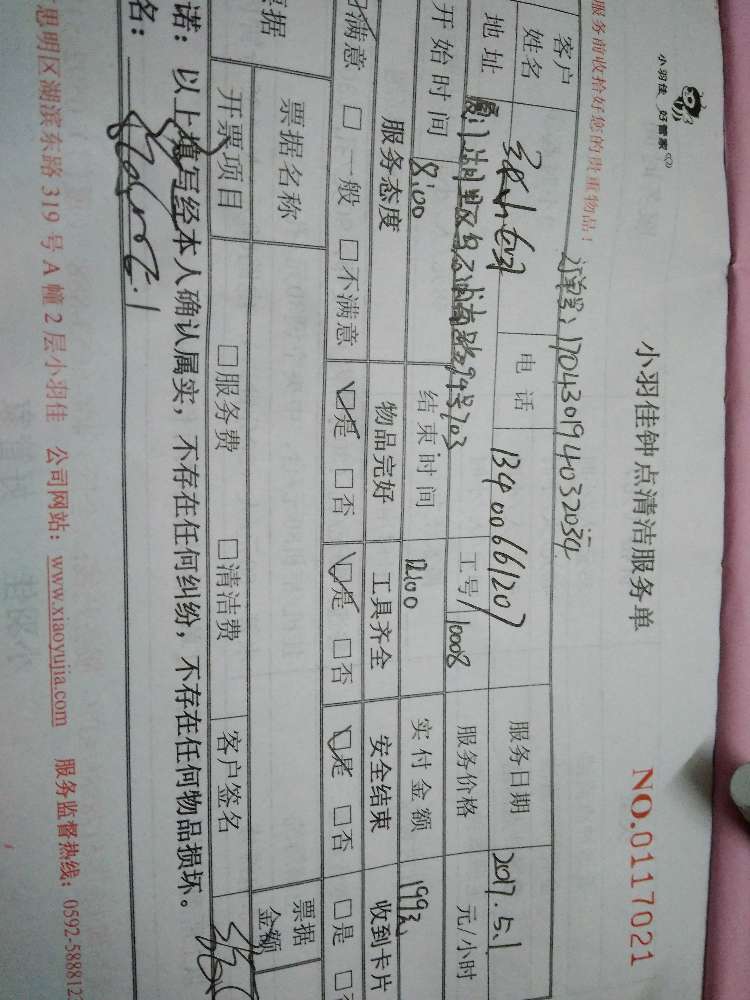 小羽佳 好管家
小羽佳钟点清洁服务单
NO.0117021
服务前收拾好您的贵重物品！
订单号：170430194032034
客户姓名 电话 13400661207 服务日期 2017.5.1
地址 厦门湖里区 南路94号703 工号 10008 服务价格 元/小时
开始时间 8:00 结束时间 12:00 实付金额 199元
服务态度 物品完好 工具齐全 安全结束 收到卡片
满意 □ 一般 □ 不满意 □是 □否 □是 □否 □是 □否 □是
票据 票据名称 票据金额
开票项目 □服务费 □清洁费 客户签名
诺：以上填写经本人确认属实，不存在任何纠纷，不存在任何物品损坏。
名：
思明区湖滨东路 319 号 A 幢 2 层小羽佳 公司网站：www.xiaoyujia.com 服务监督热线：0592-588812